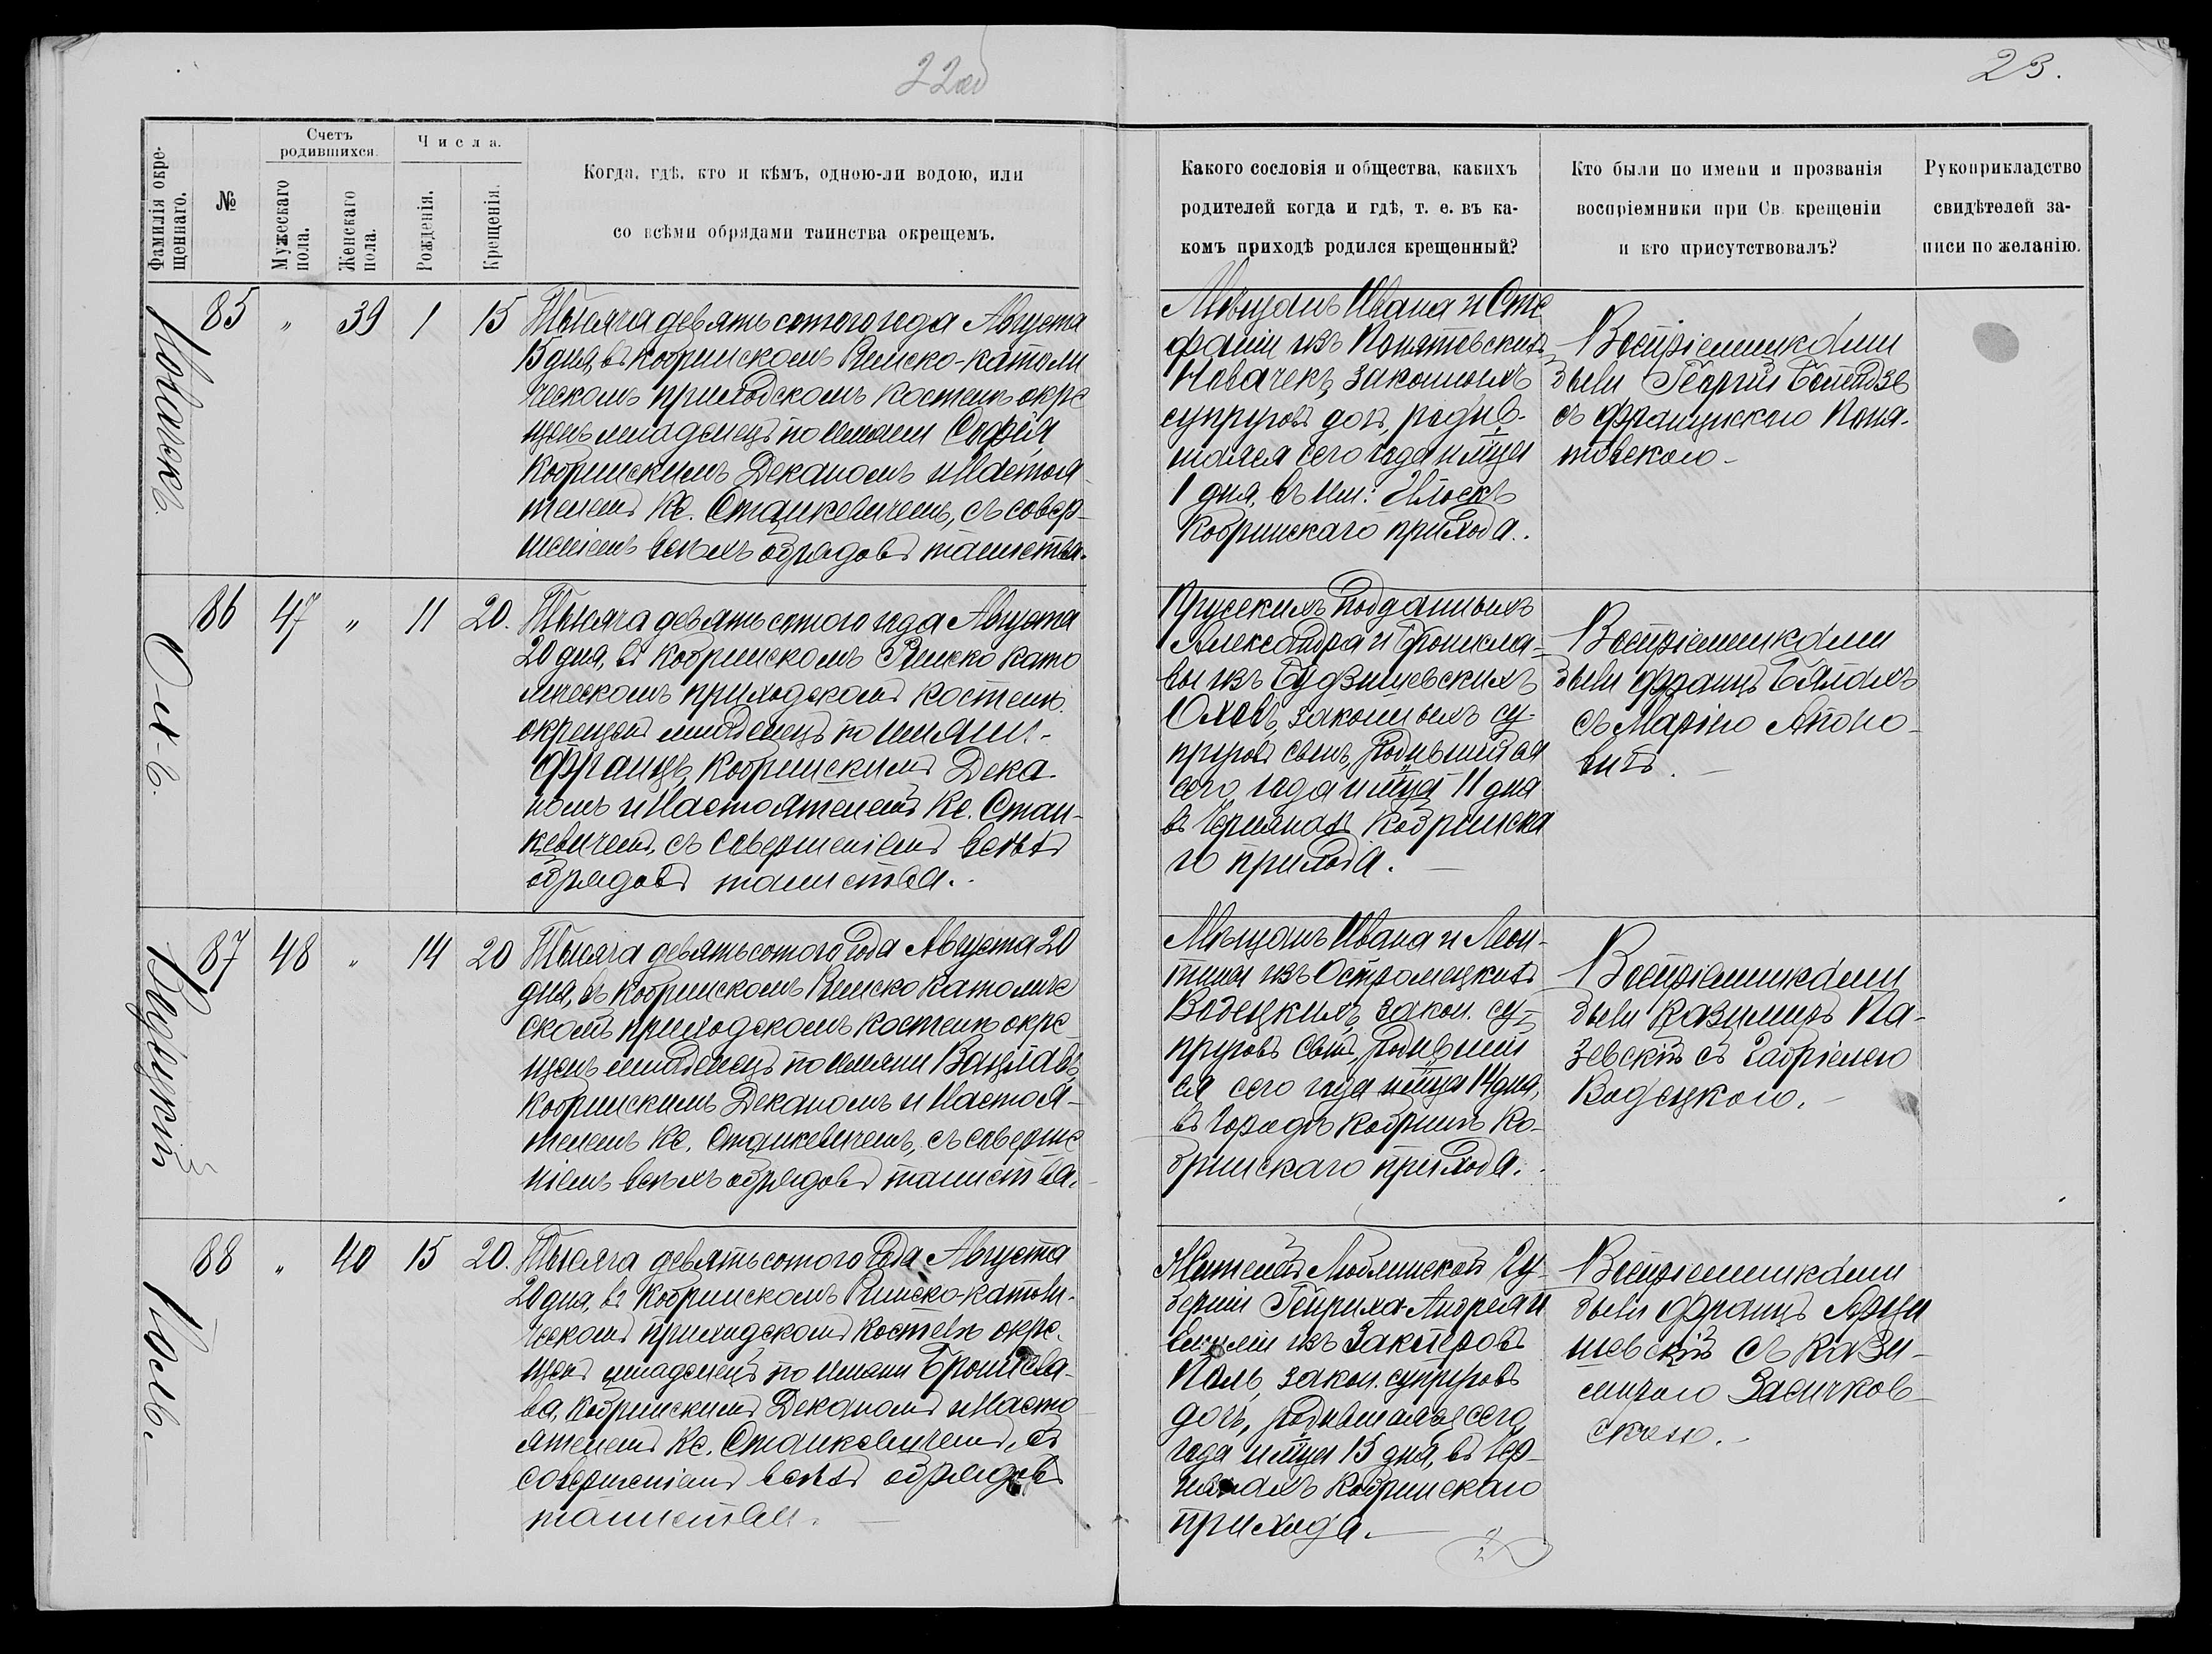 22об
23.
Фамилія окре-
щеннаго.
№
Счетъ
родившихся.
Мужескаго
пола.
Женскаго
пола.
Числа.
Рожденія.
Крещенія.
Когда, гдѣ, кто и кѣмъ, одною-ли водою, или
со всѣми обрядами таинства окрещемъ.
Какого сословія и общества, какихъ
родителей когда и гдѣ, т. е. въ ка-
комъ приходѣ родился крещенный?
Кто были по имени и прозванія
воспріемники при Св. крещеніи
и кто присутствовалъ?
Рукоприкладство
свидѣтелей за-
писи по желанію.
Новачекъ.
85 " 39 1 15
Тысяча девятьсотого года Августа
15 дня, въ Кобринскомъ Римско-католи
ческомъ приходскомъ костелѣ окре
щенъ младенецъ по имени Софія,
Кобринскимъ Деканомъ и Настоя-
телемъ Кс. Станкевичемъ, съ совер-
шеніемъ всѣхъ обрядовъ таинства.
Мѣщанъ Ивана и Сте
фаніи изъ Понятовскихъ
Новачекъ, законныхъ
супруговъ дочь, родив-
шаяся сего года и мца
1 дня, въ им: Илоскъ
Кобринскаго прихода.
Воспріемниками
были Георгій
съ Францискою Поня-
товскою.
Ох-ъ.
86 47 " 11 20.
Тысяча девятьсотого года Августа
20 дня, въ Кобринскомъ Римско като
лическомъ приходскомъ костелѣ
окрещенъ младенецъ по имени -
Францъ, Кобринскимъ Дека-
номъ и Настоятелемъ Кс. Стан-
кевичемъ, съ совершеніемъ всѣхъ
обрядовъ таинства.
Прусскихъ подданныхъ
Александра и Бронисла-
вы изъ Будзишевскихъ
Оховъ, законныхъ су-
пруговъ сынъ, родившійся
сего года и мца 11 дня
въ Чернянахъ Кобринска
го прихода.
Воспріемниками
были Францъ
съ Маріею Антоно-
вичъ.
Водецкій
87 48 " 14 20
Тысяча девятьсотого года Августа 20
дня, въ Кобринскомъ Римско Католиче
скомъ приходскомъ костелѣ окре
щенъ младенецъ по имени Вацлавъ,
Кобринскимъ Деканомъ и Настоя-
телемъ Кс. Станкевичемъ, съ соверше
ніемъ всѣхъ обрядовъ таинства.
Мѣщанъ Ивана и Леон-
тины изъ Остромецкихъ
Водецкихъ, закон. су-
пруговъ сынъ, родившій
ся сего года и мца 14 дня,
въ городѣ Кобринѣ Ко-
бринскаго прихода.
Воспріемниками
были Казимиръ Ла-
зевскій съ Габріелею
Водецкою.
Поль.
88 " 40 15 20.
Тысяча девятьсотого года Августа
20 дня, въ Кобринскомъ Римско-католи-
ческомъ приходскомъ костелѣ окре-
щенъ младенецъ по имени Бронисла-
ва, Кобринскимъ Деканомъ и Насто
ятелемъ Кс. Станкевичемъ, съ
совершеніемъ всѣхъ обрядовъ
таинства.
Жителей Люблинской Гу-
берніи Генриха-Андрея и
Емиліи изъ Закперовъ
Поль, закон. супруговъ
дочь, родившаяся сего
года и мца 15 дня, въ Чер-
нянахъ Кобринскаго
прихода.
Воспріемниками
были Францъ Арци
шевскій съ Кази-
мирою Засичков-
скою.